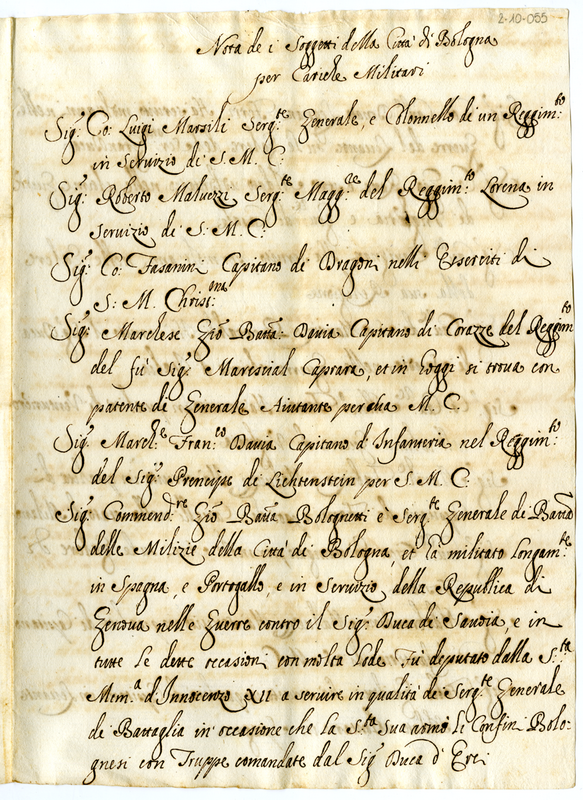 2-10-055
Nota de i Soggetti della Città di Bologna
per Cariche Militari
Sig.r Co: Luigi Marsili Serg.te Generale, e Colonnello di un Reggim.to
in servizio di S. M. C.
Sig.r Roberto Malvezzi Serg.te Magg.re del Reggim.to Lorena in
servizio di S. M. C.
Sig.r Co: Fasanini Capitano di Dragoni nelli Eserciti di
S. M. Christ.ma
Sig.r Marchese Gio Batta: Davia Capitano di Corazze del Reggim.to
del fù Sig.r Marescial Caprara, et in hoggi si trova con
patente di Generale Aiutante per da M. C.
Sig.r March.e Fran.co Davia Capitano d'Infanteria nel Reggim.to
del Sig.r Prencipe di Lichtenstein per S. M. C.
Sig.r Commend.re Gio Batta Bolognetti è Serg.te Generale di Batta
delle Milizie della Città di Bologna, et hà militato Longam.te
in Spagna, e Portogallo, e in Servizio della Republica di
Genova nelle Guerre contro il Sig.r Duca di Savoia, e in
tutte le dette occasioni con molta lode. Fù deputato dalla S.ta
Mem.a d'Innocenzo XII a servire in qualità di Serg.te Generale
di Battaglia in occasione che la S.tà Sua armò li Confini Bolo-
gnesi con Truppe comandate dal Sig.r Duca d'